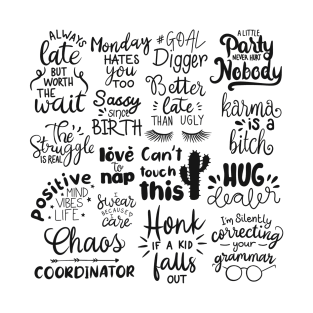 ALWAYS
late
BUT
WORTH
THE
wait
Monday
HATES
YOU
TOO
#GOAL
Digger
A LITTLE
Party
NEVER HURT
Nobody
Sassy
SINCE
BIRTH
Better
late
THAN UGLY
karma
IS A
bitch
The
Struggle
IS REAL
love
to
nap
Can't
touch
this
HUG
dealer
Positive
MIND
VIBES
LIFE
I
Swear
BECAUSE I
care
Honk
IF A KID
falls
OUT
I'm Silently
correcting
your
grammar
Chaos
COORDINATOR